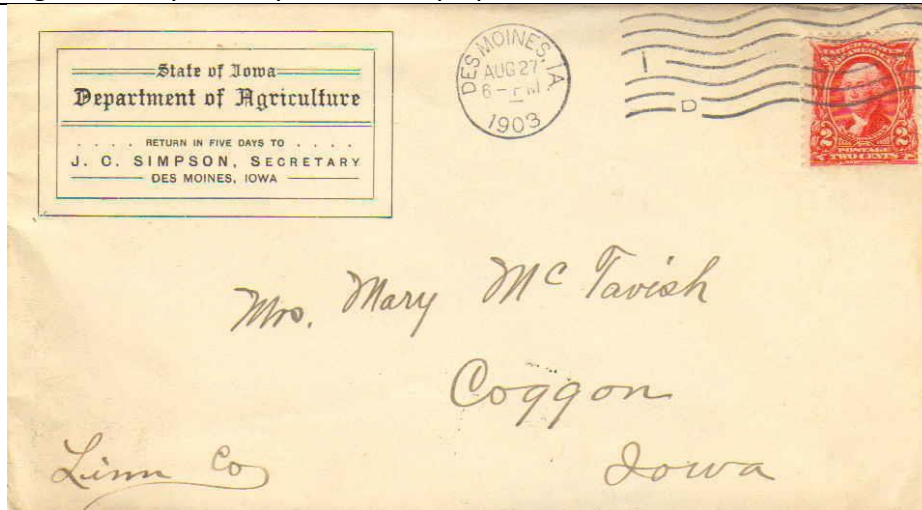 State of Iowa
Department of Agriculture
RETURN IN FIVE DAYS TO
J. C. SIMPSON, SECRETARY
DES MOINES, IOWA
DES MOINES, IA.
AUG 27
6 - PM
1903
I
D
UNITED STATES
OF AMERICA
2 2
POSTAGE
TWO CENTS
Mrs. Mary Mc Tavish
Coggon
Linn Co
Iowa